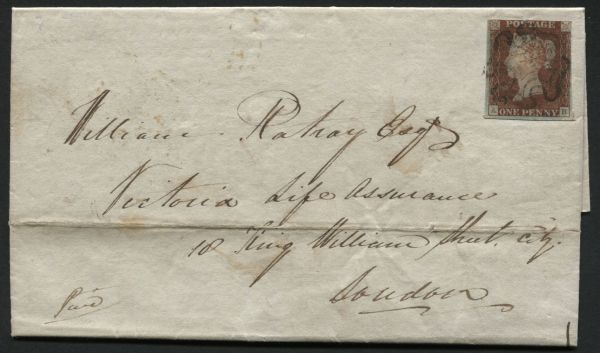 POSTAGE
ONE PENNY
William Rattray Esqr
Victoria Life Assurance
18 King William Street. City.
London
Paid